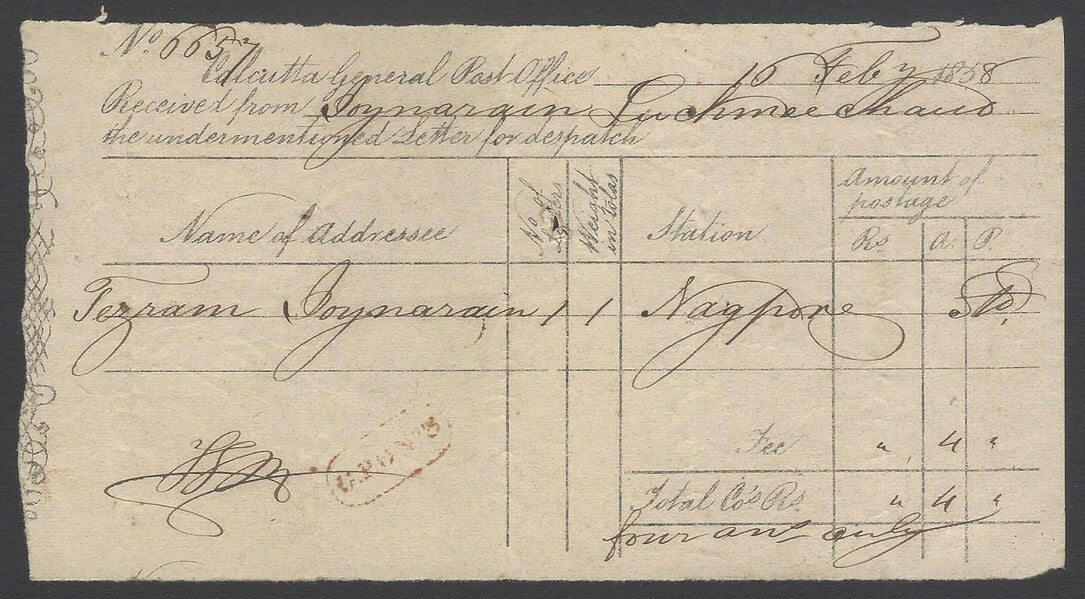 No 6657
Calcutta General Post Office 16 Feby 1858
Received from Joynarain Luchmee Chaud
the undermentioned Letter for despatch
Name of Addressee No. of Letters Weight in tolas Station Amount of postage
Rs. A. P.
Tezram Joynarain 1 1 Nagpore Std
Fee " 4 "
Total Co's Rs. " 4 "
four ans only